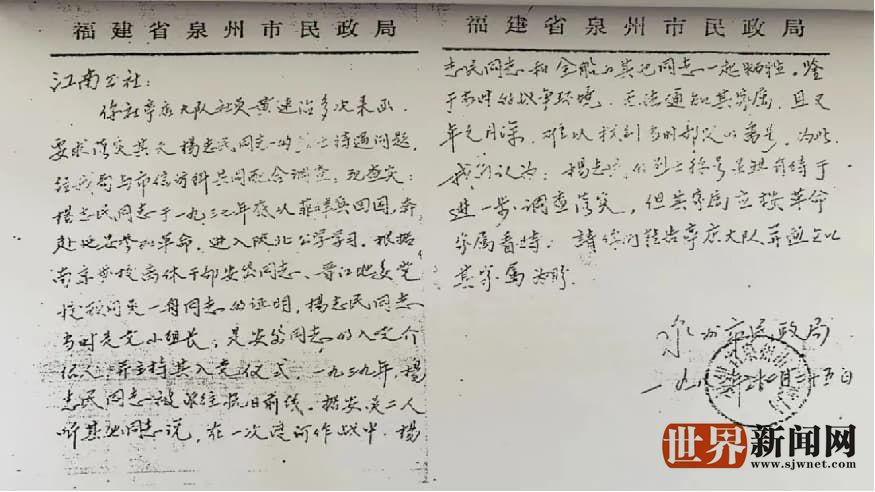 福建省泉州市民政局
江南公社：
你社亭店大队社员黄速治多次来函，
要求落实其父杨志民同志的烈士待遇问题，
经我局与市信访科共同配合调查，现查实：
杨志民同志于一九三七年底从菲律宾回国，奔
赴延安参加革命，进入陕北公学学习。根据
南京党校离休干部安岱同志、晋江地委党
校顾问吴一舟同志的证明，杨志民同志
当时是党小组长，是安岱同志的入党介
绍人，并主持其入党仪式，一九三九年，杨
志民同志被派往抗日前线。据安、吴二人
听其他同志说，在一次渡河作战中，杨
福建省泉州市民政局
志民同志和全船的其他同志一起牺牲。鉴
于当时的战争环境，无法通知其家属，且又
年久月深，难以找到当时部队的番号，为此
我们认为：杨志民的烈士称号虽现有待于
进一步调查落实，但其家属应按革命
家属看待。请你们转告亭店大队并通知
其家属为盼。
泉州市民政局
一九八 年十二月二十五日
世界新闻网
www.sjwnet.com